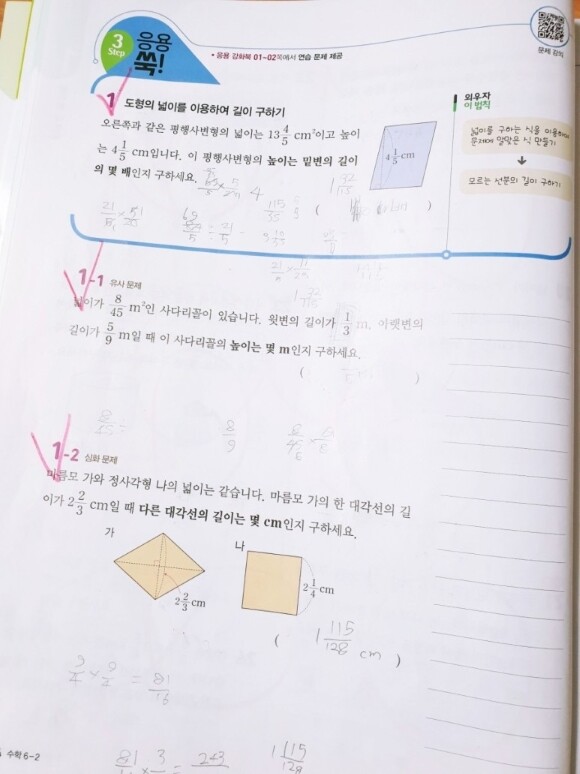 3
Step
응용
쏙!
• 응용 강화북 01~02쪽에서 연습 문제 제공
문제 강의
1 도형의 넓이를 이용하여 길이 구하기
오른쪽과 같은 평행사변형의 넓이는 13 4/5 cm²이고 높이
는 4 1/5 cm입니다. 이 평행사변형의 높이는 밑변의 길이
의 몇 배인지 구하세요.
4 1/5 cm
( )
외우자
이 법칙
넓이를 구하는 식을 이용하여
문제에 알맞은 식 만들기
↓
모르는 선분의 길이 구하기
1-1 유사 문제
넓이가 8/45 m²인 사다리꼴이 있습니다. 윗변의 길이가 1/3 m, 아랫변의
길이가 5/9 m일 때 이 사다리꼴의 높이는 몇 m인지 구하세요.
( )
8/9
1-2 심화 문제
마름모 가와 정사각형 나의 넓이는 같습니다. 마름모 가의 한 대각선의 길
이가 2 2/3 cm일 때 다른 대각선의 길이는 몇 cm인지 구하세요.
가
2 2/3 cm
나
2 1/4 cm
( 1 115/128 cm )
9/4 × 9/4 = 81/16
수학 6-2
1 115/128